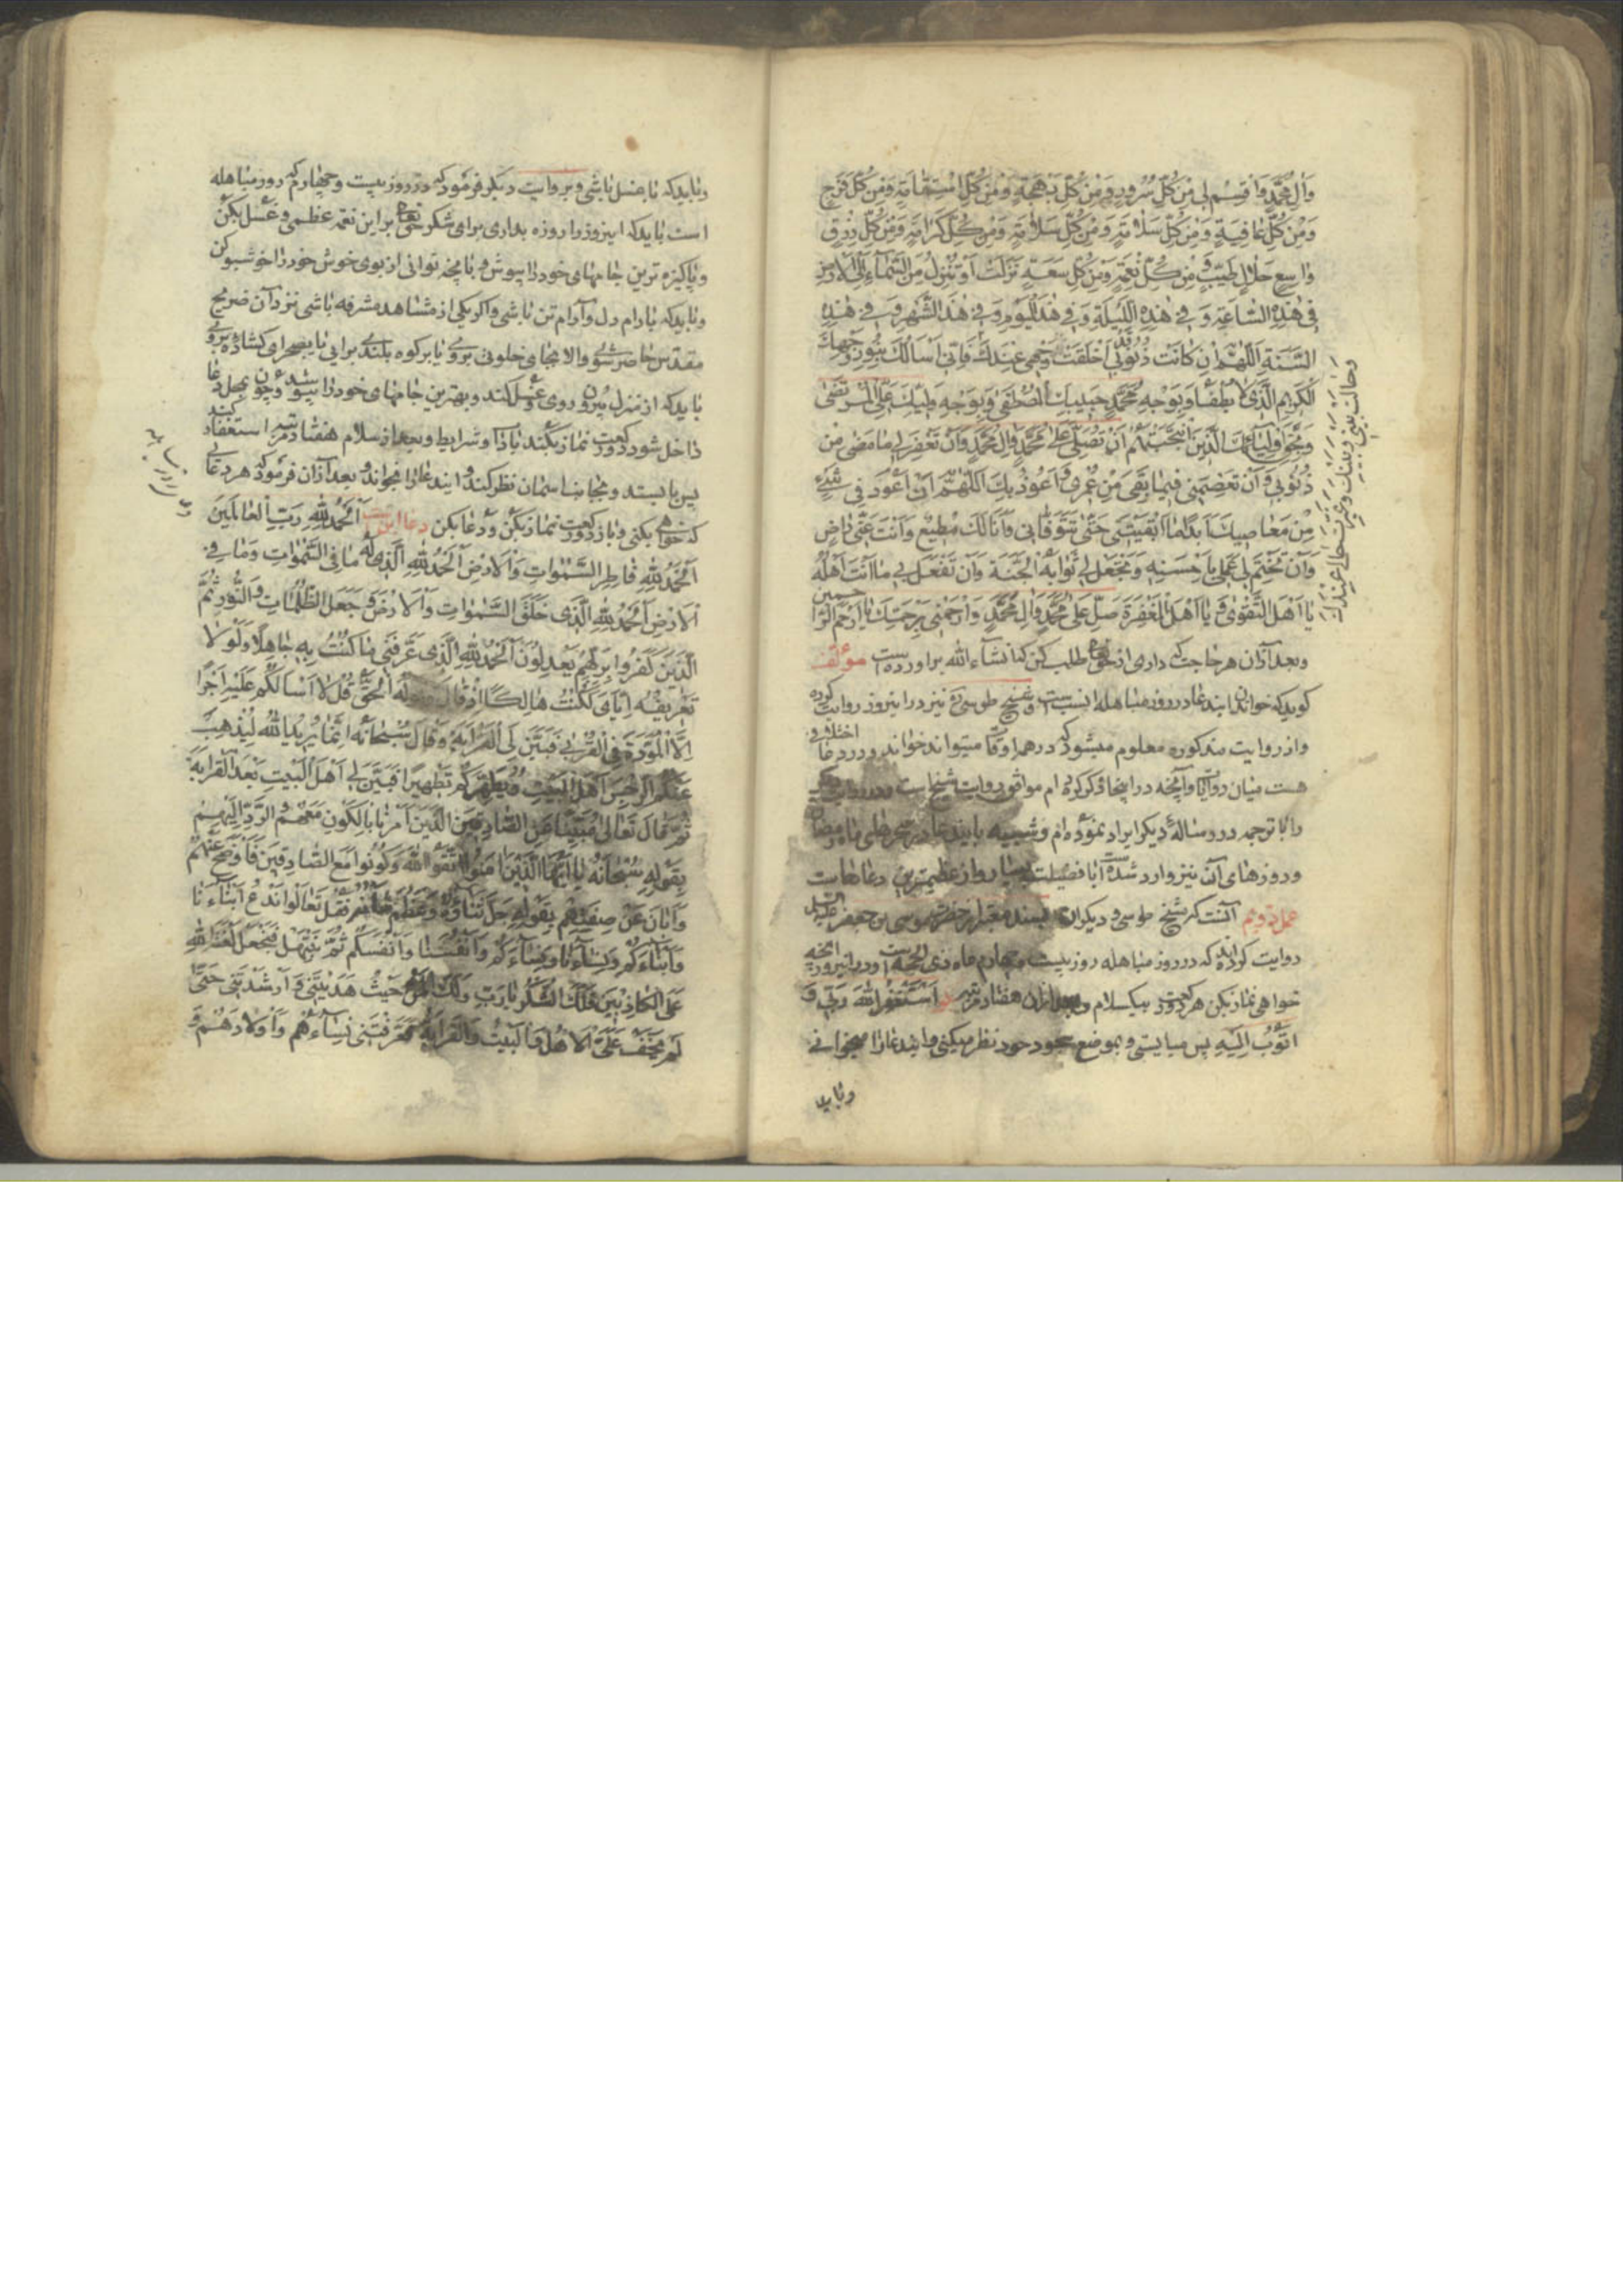 وَآلِ مُحَمَّدٍ وَاقْسِمْ لِي مِنْ كُلِّ سُرُورٍ وَمِنْ كُلِّ بَهْجَةٍ وَمِنْ كُلِّ اسْتِقَامَةٍ وَمِنْ كُلِّ فَرَجٍ
وَمِنْ كُلِّ عَافِيَةٍ وَمِنْ كُلِّ سَلَامَةٍ وَمِنْ كُلِّ سَلَامَةٍ وَمِنْ كُلِّ كَرَامَةٍ وَمِنْ كُلِّ رِزْقٍ
وَاسِعٍ حَلَالٍ طَيِّبٍ وَمِنْ كُلِّ نِعْمَةٍ وَمِنْ كُلِّ سَعَةٍ نَزَلَتْ أَوْ تَنْزِلُ مِنَ السَّمَاءِ إِلَى الْأَرْضِ
فِي هَذِهِ السَّاعَةِ وَفِي هَذِهِ اللَّيْلَةِ وَفِي هَذَا الْيَوْمِ وَفِي هَذَا الشَّهْرِ وَفِي هَذِهِ
السَّنَةِ اَللّٰهُمَّ إِنْ كَانَتْ ذُنُوبِي قَدْ أَخْلَقَتْ وَجْهِي عِنْدَكَ فَإِنِّي أَسْأَلُكَ بِنُورِ وَجْهِكَ
الْكَرِيمِ الَّذِي لَا يُطْفَأُ وَبِوَجْهِ مُحَمَّدٍ حَبِيبِكَ الْمُصْطَفَى وَبِوَجْهِ وَلِيِّكَ عَلِيٍّ الْمُرْتَضَى
وَبِحَقِّ أَوْلِيَائِكَ الَّذِينَ انْتَجَبْتَهُمْ أَنْ تُصَلِّيَ عَلَى مُحَمَّدٍ وَآلِ مُحَمَّدٍ وَأَنْ تَغْفِرَ لِي مَا مَضَى مِنْ
ذُنُوبِي وَأَنْ تَعْصِمَنِي فِيمَا بَقِيَ مِنْ عُمْرِي وَأَعُوذُ بِكَ اللّٰهُمَّ أَنْ أَعُودَ فِي شَيْءٍ
مِنْ مَعَاصِيكَ أَبَدًا مَا أَبْقَيْتَنِي حَتَّى تَتَوَفَّانِي وَأَنَا لَكَ مُطِيعٌ وَأَنْتَ عَنِّي رَاضٍ
وَأَنْ تَخْتِمَ لِي عَمَلِي بِأَحْسَنِهِ وَتَجْعَلَ لِي ثَوَابَهُ الْجَنَّةَ وَأَنْ تَفْعَلَ بِي مَا أَنْتَ أَهْلُهُ
يَا أَهْلَ التَّقْوَى وَيَا أَهْلَ الْمَغْفِرَةِ صَلِّ عَلَى مُحَمَّدٍ وَآلِ مُحَمَّدٍ وَارْحَمْنِي بِرَحْمَتِكَ يَا أَرْحَمَ الرَّاحِمِينَ
وبعد از آن هر حاجت که داری از حق تعالی طلب کن که انشاء الله برآورده است مؤلف
کوید که خواندن ایندعا در روز مباهله انسب است و شیخ طوسی ره نیز در اینروز روایت کرده
واز روایت مذکوره معلوم میشود که در همه اوقات میتواند خواند و در دعا اختلافی
هست میان روایات وآنچه در اینجا ذکر کرده ام موافق روایت شیخ است
را با ترجمه در رساله دیکر ایراد نموده ام و شبیه باین دعا در سحرهای ماه رمضان
وروزهای آن نیز وارد شده است اما فضیلت بسیار واز عظیمترین دعاهاست
عمل دویم آنست که شیخ طوسی و دیکران بسند معتبر از حضرت موسی بن جعفر علیه السلام
روایت کرده اند که در روز مباهله روز بیست و چهارم ماه ذی الحجه است و در اینروز آنچه
خواهی نماز بکن هر دو رکعت بیکسلام وبعد از آن هفتاد مرتبه اَسْتَغْفِرُ اللهَ رَبِّي وَ
اَتُوبُ اِلَيْهِ پس میایستی و بموضع سجود خود نظر میکنی و ایندعا را میخوانی
وباید
وباید که با غسل باشی و بروایت دیکر فرمود که در روز بیست وچهارم که روز مباهله
است باید که اینروز را روزه بداری برای شکر حق تعالی بر این نعمه عظمی و غسل بکن
وپاکیزه ترین جامهای خود را بپوش و بآنچه توانی از بوی خوش خود را خوشبو کن
وباید که بآرام دل وآرام تن باشی واکر یکی از مشاهد مشرفه باشی نزد آن ضریح
مقدس حاضر شوی والا بجای خلوتی بروی یا بر کوه بلندی برائی یا بصحرای کشاده بروی
باید که از منزل بیرون روی و غسل کند و بهترین جامهای خود را بپوشد و چون بمحل دعا
داخل شود دو رکعت نماز بکند بآداب و شرایط وبعد از سلام هفتاد مرتبه استغفار کند
پس بایستد وبجانب اسمان نظر کند و ایندعا را بخواند و بعد از آن فرمود که هر دعائی
که خواهی بکنی و باز دو رکعت نماز بکن و دعا بکن دعا اینست اَلْحَمْدُ لِلّٰهِ رَبِّ الْعَالَمِينَ
اَلْحَمْدُ لِلّٰهِ فَاطِرِ السَّمٰوَاتِ وَالْاَرْضِ اَلْحَمْدُ لِلّٰهِ الَّذِي لَهُ مَا فِي السَّمٰوَاتِ وَمَا فِي
الْاَرْضِ اَلْحَمْدُ لِلّٰهِ الَّذِي خَلَقَ السَّمٰوَاتِ وَالْاَرْضَ وَجَعَلَ الظُّلُمَاتِ وَالنُّورَ ثُمَّ
الَّذِينَ كَفَرُوا بِرَبِّهِمْ يَعْدِلُونَ اَلْحَمْدُ لِلّٰهِ الَّذِي عَرَّفَنِي مَا كُنْتُ بِهِ جَاهِلًا وَلَوْلَا
تَعْرِيفُهُ إِيَّايَ لَكُنْتُ هَالِكًا إِذْ قَالَ وَقَوْلُهُ الْحَقُّ قُلْ لَا أَسْأَلُكُمْ عَلَيْهِ أَجْرًا
إِلَّا الْمَوَدَّةَ فِي الْقُرْبَى فَبَيَّنَ لِيَ الْقَرَابَةَ وَقَالَ سُبْحَانَهُ إِنَّمَا يُرِيدُ اللهُ لِيُذْهِبَ
عَنْكُمُ الرِّجْسَ أَهْلَ الْبَيْتِ وَيُطَهِّرَكُمْ تَطْهِيرًا فَبَيَّنَ لِي أَهْلَ الْبَيْتِ بَعْدَ الْقَرَابَةِ
ثُمَّ قَالَ تَعَالَى مُبَيِّنًا عَنِ الصَّادِقِينَ الَّذِينَ أَمَرَنَا بِالْكَوْنِ مَعَهُمْ وَالرَّدِّ إِلَيْهِمْ
بِقَوْلِهِ سُبْحَانَهُ يَا أَيُّهَا الَّذِينَ آمَنُوا اتَّقُوا اللهَ وَكُونُوا مَعَ الصَّادِقِينَ فَأَوْضَحَ عَنْهُمْ
وَأَبَانَ عَنْ صِفَتِهِمْ بِقَوْلِهِ جَلَّ ثَنَاؤُهُ فَقُلْ تَعَالَوْا نَدْعُ أَبْنَاءَنَا
وَأَبْنَاءَكُمْ وَنِسَاءَنَا وَنِسَاءَكُمْ وَأَنْفُسَنَا وَأَنْفُسَكُمْ ثُمَّ نَبْتَهِلْ فَنَجْعَلْ لَعْنَةَ اللهِ
عَلَى الْكَاذِبِينَ فَلَكَ الشُّكْرُ يَا رَبِّ وَلَكَ الْمَنُّ حَيْثُ هَدَيْتَنِي وَأَرْشَدْتَنِي حَتَّى
لَمْ يَخْفَ عَلَيَّ الْأَهْلُ وَالْبَيْتُ وَالْقَرَابَةُ فَعَرَّفْتَنِي نِسَاءَهُمْ وَأَوْلَادَهُمْ وَ